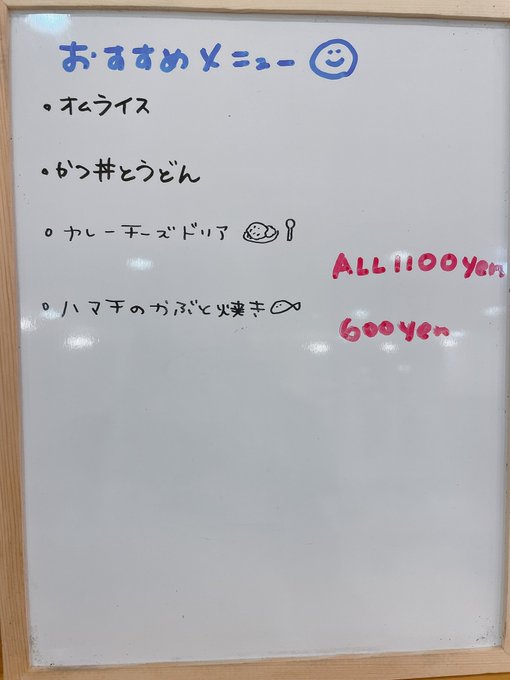 おすすめメニュー
・オムライス
・かつ丼とうどん
・カレーチーズドリア
ALL 1100yen
・ハマチのかぶと焼き
600yen